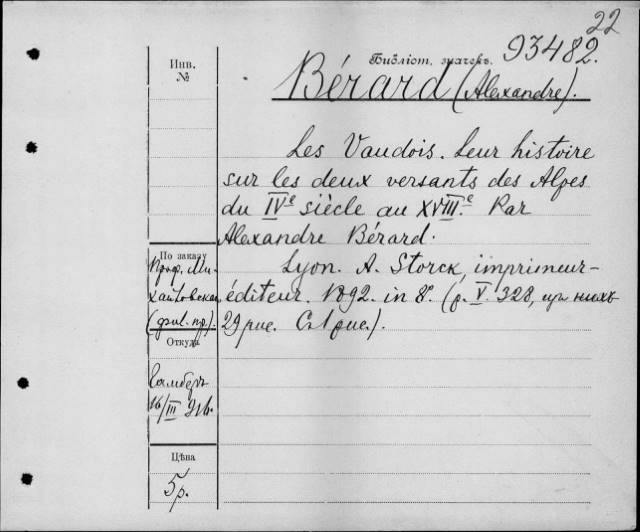 22
Библіот. значекъ. 93482.
Инв.
№
Bérard (Alexandre).
Les Vaudois. Leur histoire
sur les deux versants des Alpes
du IVe siècle au XVIIIe. Par
Alexandre Bérard.
Lyon. A. Storck, imprimeur-
éditeur. 1892. in 8º. (p. V. 328, при нихъ
29 рис. С 1 рис.).
По заказу
Проф. Ми-
Откуда
16/III 916.
Цѣна
5 р.